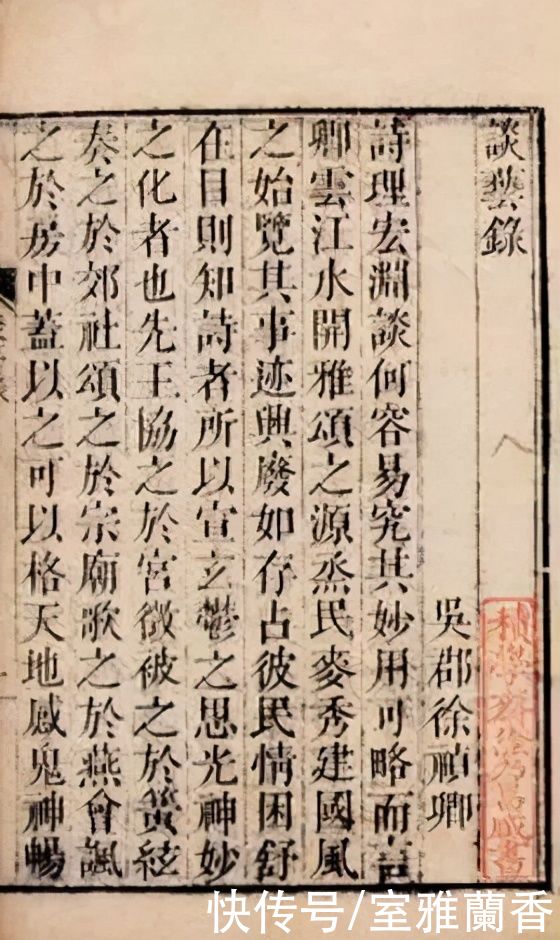 談藝錄
吳郡徐禎卿
詩理宏淵談何容易究其妙用可略而言
卿雲江水開雅頌之源烝民麥秀建國風
之始覽其事迹興廢如存占彼民情困舒
在目則知詩者所以宣玄鬱之思光神妙
之化者也先王協之於宮徵被之於簧絃
奏之於郊社頌之於宗廟歌之於燕會諷
之於房中蓋以之可以格天地感鬼神暢
積學齋徐乃昌藏書
快传号/室雅蘭香